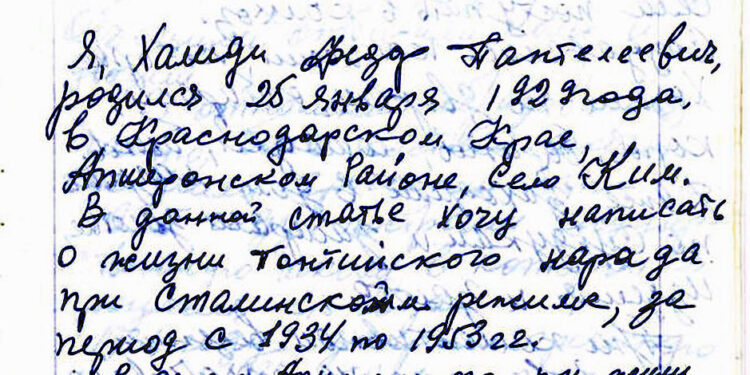 Я, Халиди Федор Пантелеевич,
родился 25 января 1929 года.
в Краснодарском Крае,
Апшеронском Районе, Село Ким.
В данной статье хочу написать
о жизни Понтийского нарада
при Сталинском режиме, за
период с 1934 по 1953 гг.